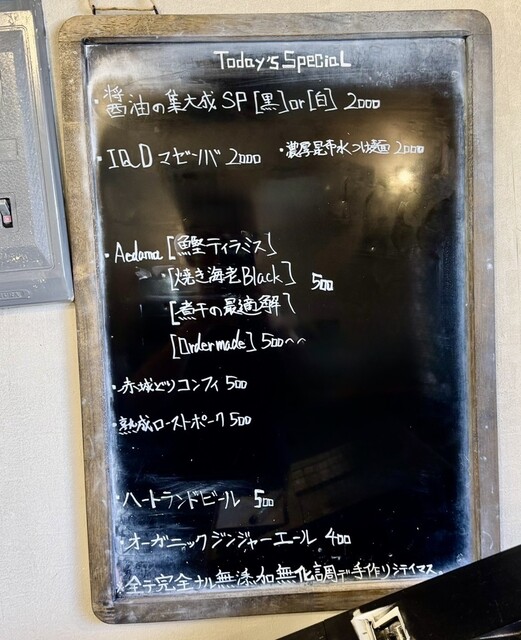 Today's Special
・醤油の集大成 SP [黒] or [白] 2000
・IQD マゼソバ 2000 ・濃厚昆布水つけ麺 2000
・Aedama [鰹ティラミス]
[焼き海老Black] 500
[煮干の最適解]
[Order made] 500〜
・赤城どりコンフィ 500
・熟成ローストポーク 500
・ハートランドビール 500
・オーガニックジンジャーエール 400
※全テ完全ナル無添加無化調デ手作リシテイマス